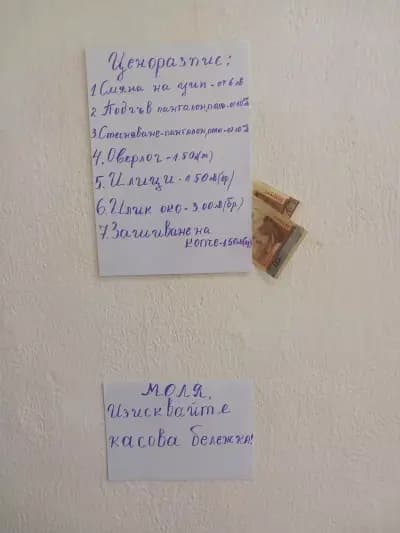 Ценоразпис:
1 Смяна на цип - от 6 лв
2 Подгъв панталон, пола - от 10лв
3 Стесняване - панталон, пола - от 10лв
4. Оверлог - 1.50лв(м)
5. Илици - 1.50лв(бр)
6. Илик око - 3.00лв(бр.)
7. Зашиване на
копче - 1.50лв(бр)
МОЛЯ,
Изисквайте
касова бележка!